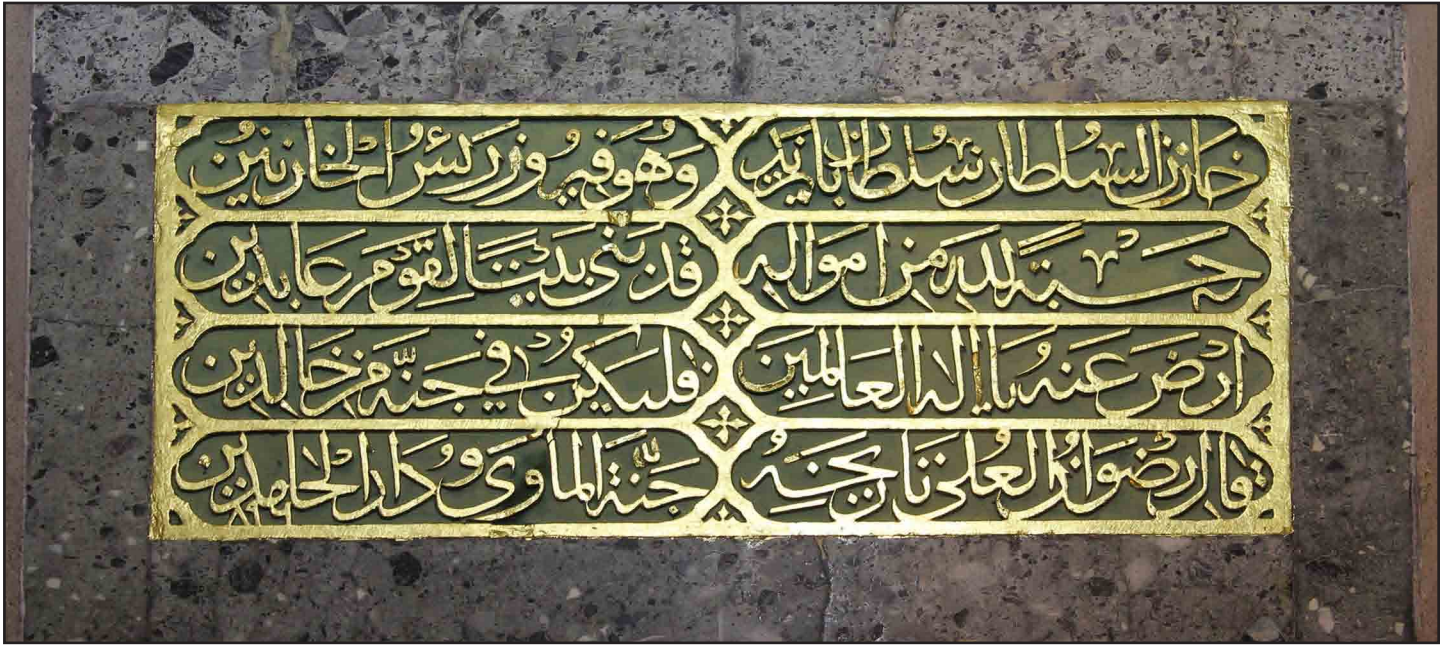 خازن السلطان سلطان بايزيد وهو فيروز رئس الخازنين
حسبة لله من امواله قد بنى بيتا لقوم عابدين
ارض عنه يا اله العالمين فليكن في جنة من خالدين
قال رضوان العلى تاريخه جنة المأوى ودار الحامدين